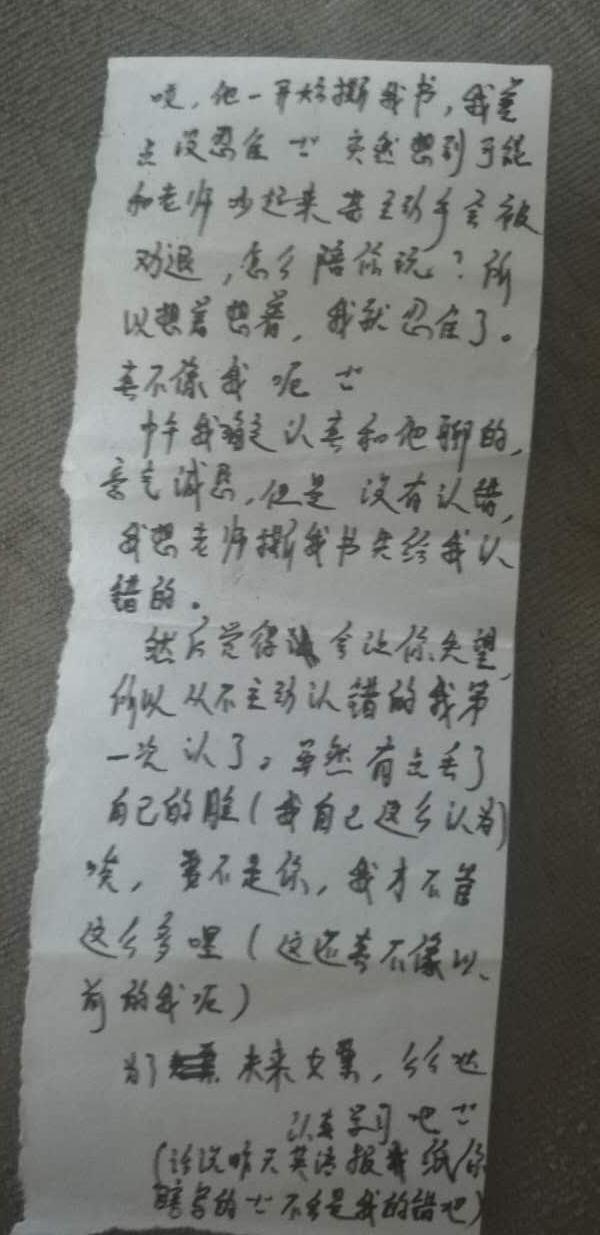 唉，他一开始撕我书，我差
点没忍住 突然想到可能
和老师吵起来 主动手会被
劝退，怎么陪你玩？所
以想着想着，我就忍住了。
真不像我呢
中午我确定认真和他聊的，
诚恳，但是 没有认错，
我想老师撕我书先给我认
错的。
然后觉得 会让你失望，
所以从不主动认错的我第
一次认了。虽然有点丢了
自己的脸（我自己这么认为）
唉，要不是你，我才不管
这么多哩（这还真不像以
前的我呢）
为了 未来
认真学习吧
（话说昨天英语报 纸你
瞎写的 不会是我的错吧）